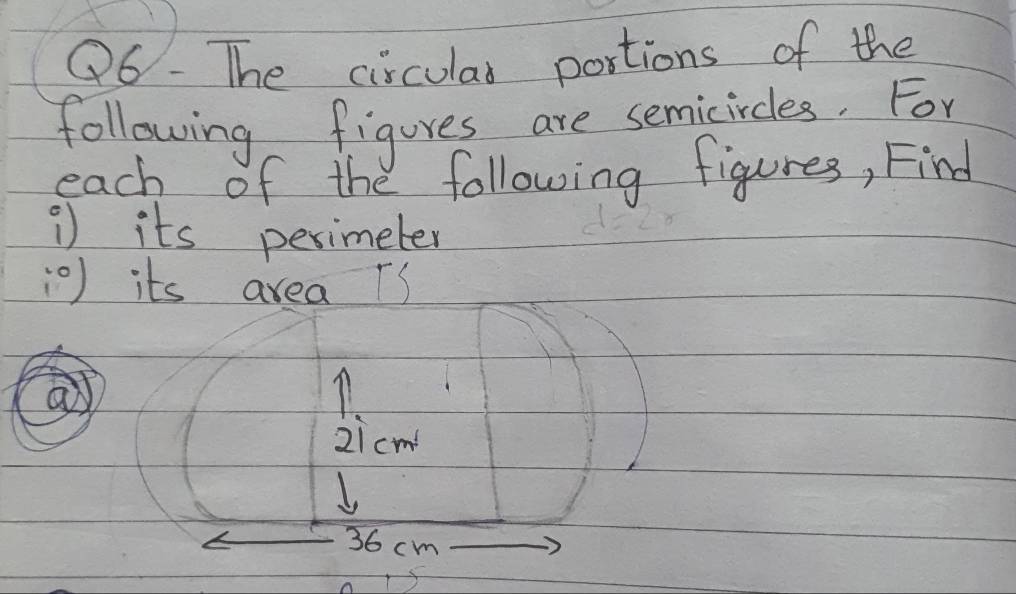 Q6 - The circular portions of the
following figures are semicircles. For
each of the following figures, Find
i) its perimeter
d=2r
ii) its area
a)
21 cm
36 cm